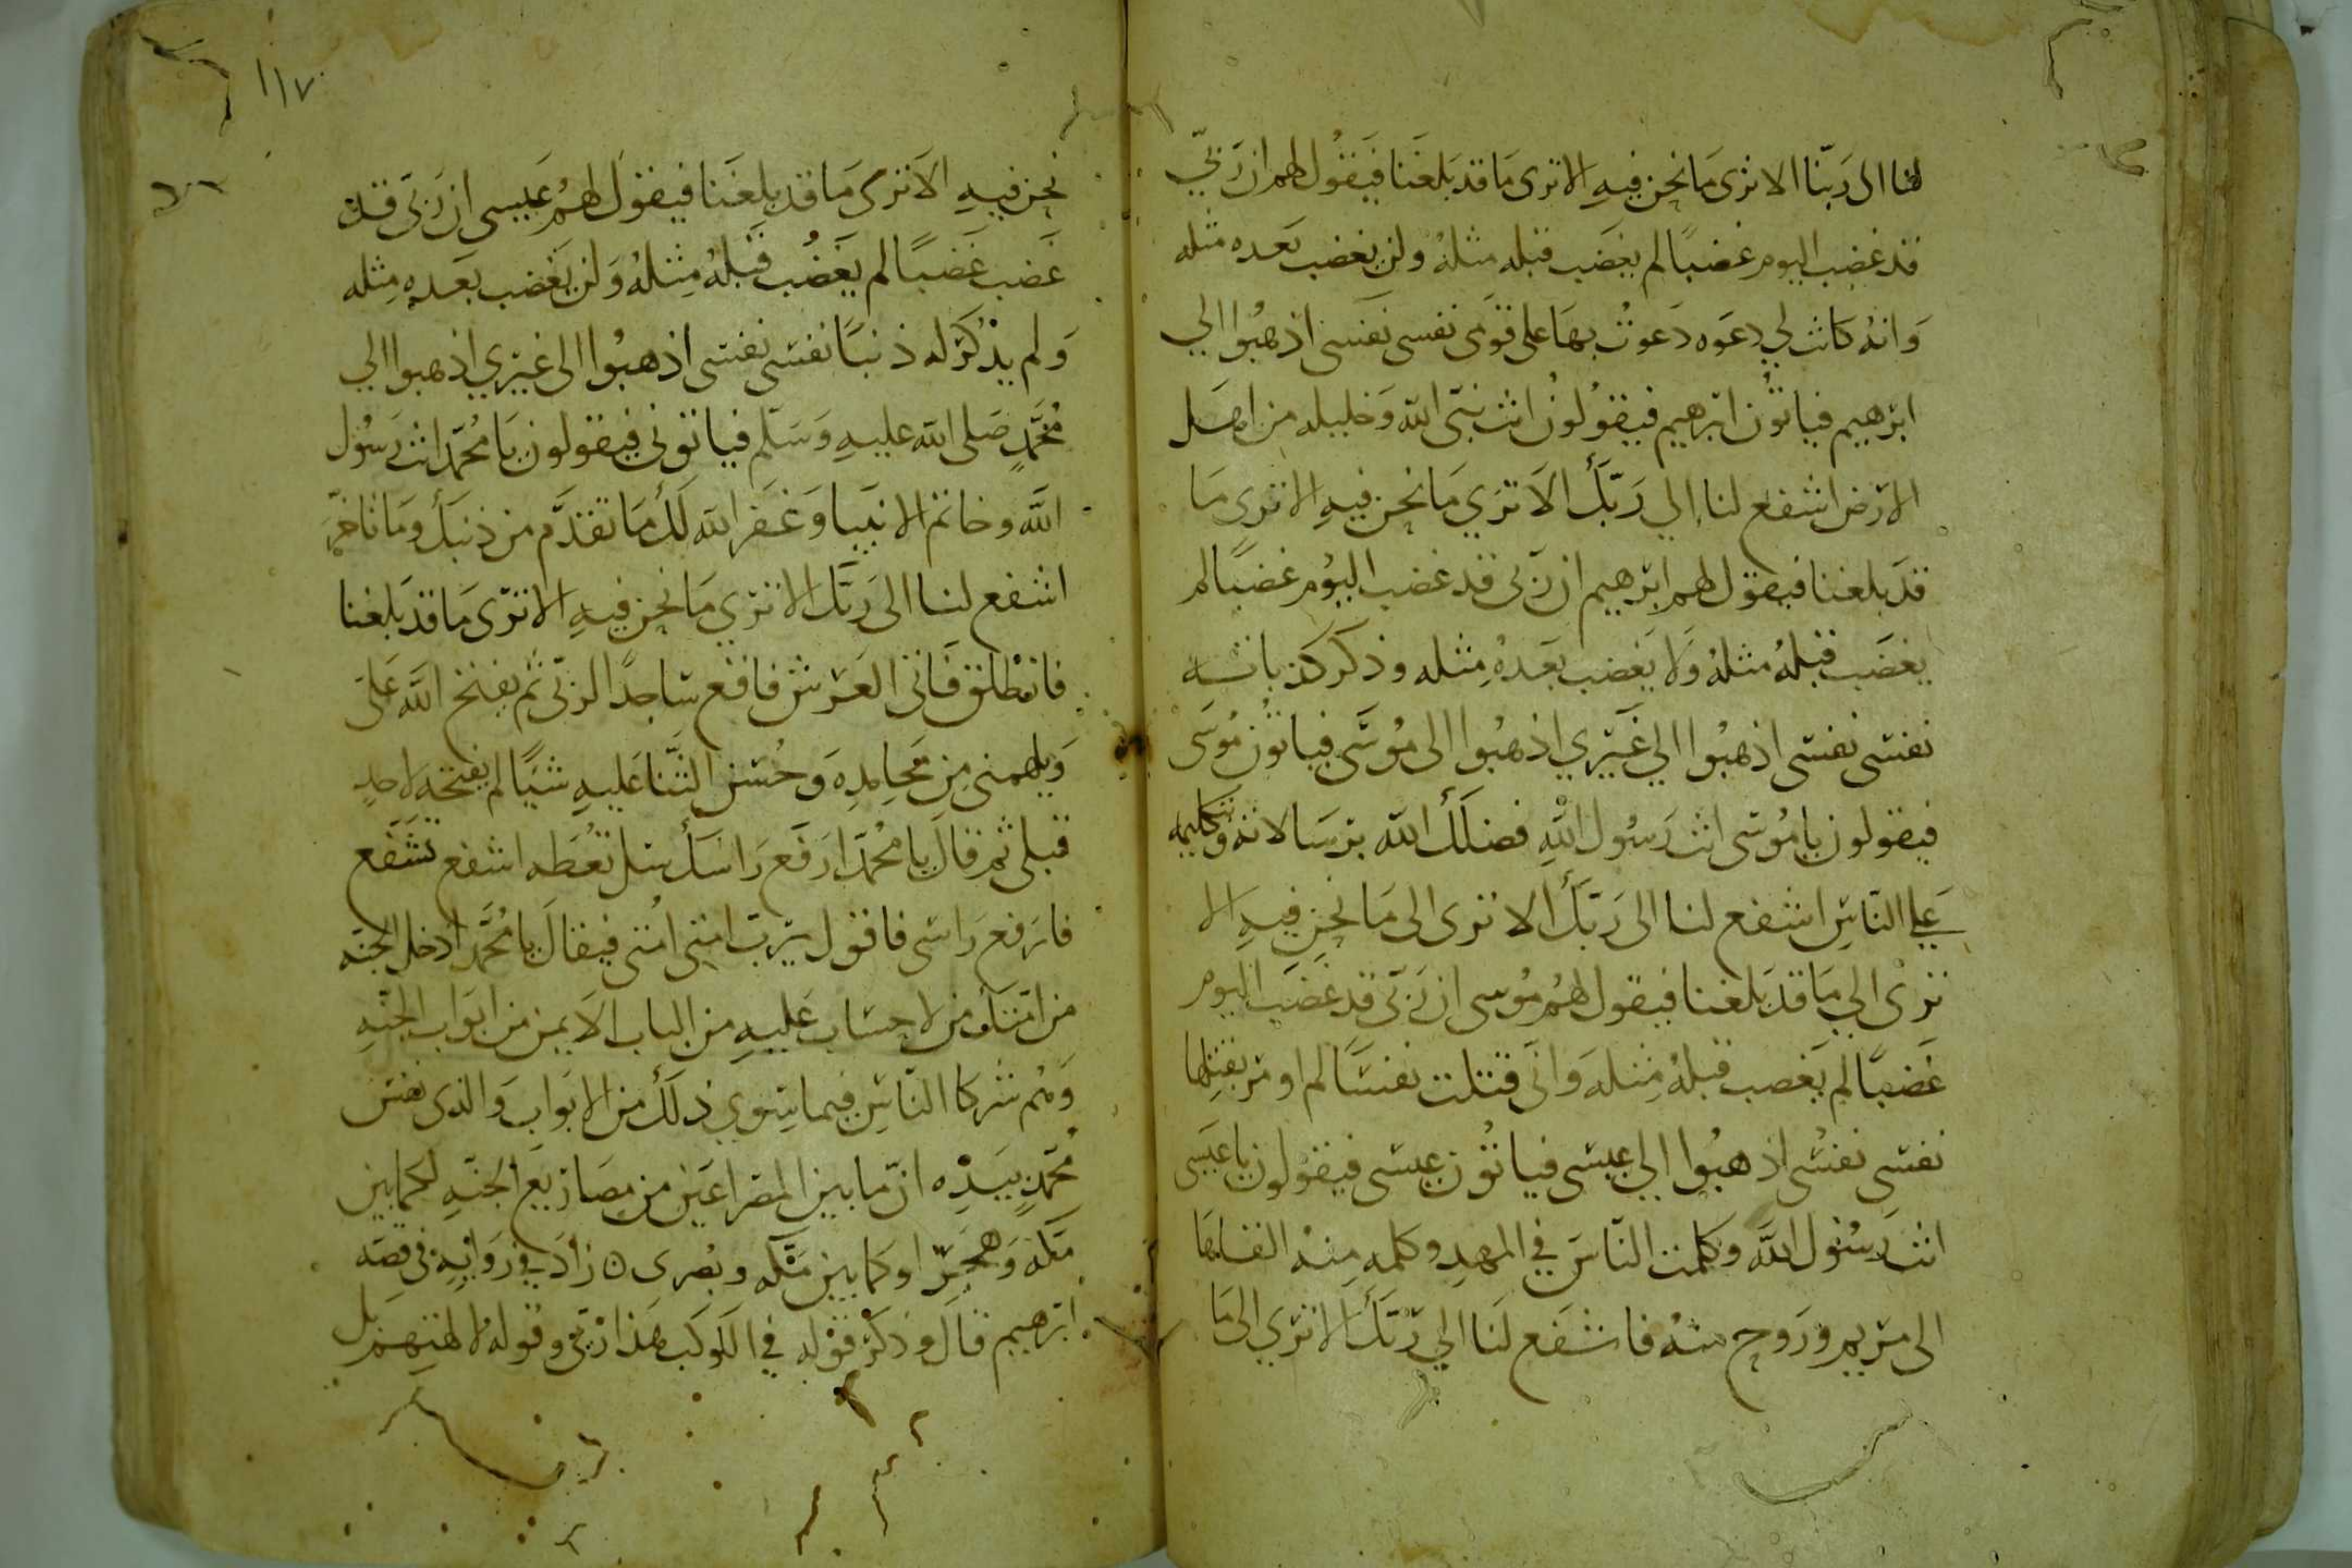 لنا الى ربّنا الا ترى ما نحن فيه الا ترى ما قد بلغنا فيقول لهم ان ربّي
قد غضب اليوم غضبًا لم يغضب قبله مثله ولن يغضب بعده مثله
وانه كانت لي دعوه دعوت بها على قومى نفسى نفسى اذهبوا الي
ابرهيم فياتون ابرهيم فيقولون انت نبى الله وخليله من اهل
الارض اشفع لنا الي ربك الا تري ما نحن فيه الا تري ما
قد بلغنا فيقول لهم ابرهيم ان ربى قد غضب اليوم غضبًا لم
يغضب قبله مثله ولا يغضب بعده مثله وذكر كذباته
نفسى نفسى اذهبوا الي غيري اذهبوا الى موسى فياتون موسى
فيقولون يا موسى انت رسول الله فضلك الله برسالاته وتكليمه
علي الناس اشفع لنا الى ربك الا ترى الى ما نحن فيه الا
ترى الي ما قد بلغنا فيقول لهم موسى ان ربى قد غضب اليوم
غضبًا لم يغضب قبله مثله وانى قتلت نفسًا لم اومر بقتلها
نفسى نفسى اذهبوا الي عيسى فياتون عيسى فيقولون يا عيسى
انت رسول الله وكلمت الناس في المهد وكلمه منه القاها
الى مريم وروح منه فاشفع لنا الي ربك الا تري الى ما
١١٧
نحن فيه الا ترى ما قد بلغنا فيقول لهم عيسى ان ربى قد
غضب غضبًا لم يغضب قبله مثله ولن يغضب بعده مثله
ولم يذكر له ذنبًا نفسى نفسى اذهبوا الى غيري اذهبوا الي
محمدٍ صلى الله عليه وسلم فياتونى فيقولون يا محمد انت رسول
الله وخاتم الانبيا وغفر الله لك ما تقدم من ذنبك وما تاخر
اشفع لنا الى ربك الا تري ما نحن فيه الا ترى ما قد بلغنا
فانطلق فاتى العرش فاقع ساجدًا لربى ثم يفتح الله على
ويلهمنى من محامده وحسن الثنا عليه شيًا لم يفتحه لاحدٍ
قبلى ثم قال يا محمد ارفع راسك سل تعطه اشفع تشفع
فارفع راسى فاقول يرب امتى امتى فيقال يا محمد ادخل الجنه
من امتك من لا حساب عليه من الباب الايمن من ابواب الجنه
وهم شركا الناس فيما سوي ذلك من الابواب والذى نفس
محمدٍ بيده ان ما بين المصراعين من مصاريع الجنه لكما بين
مكه وهجر او كما بين مكه وبصرى ه زاد في روايه فى قصه
ابرهيم قال وذكر قوله في الكوكب هذا ربى وقوله لالهتهم بل